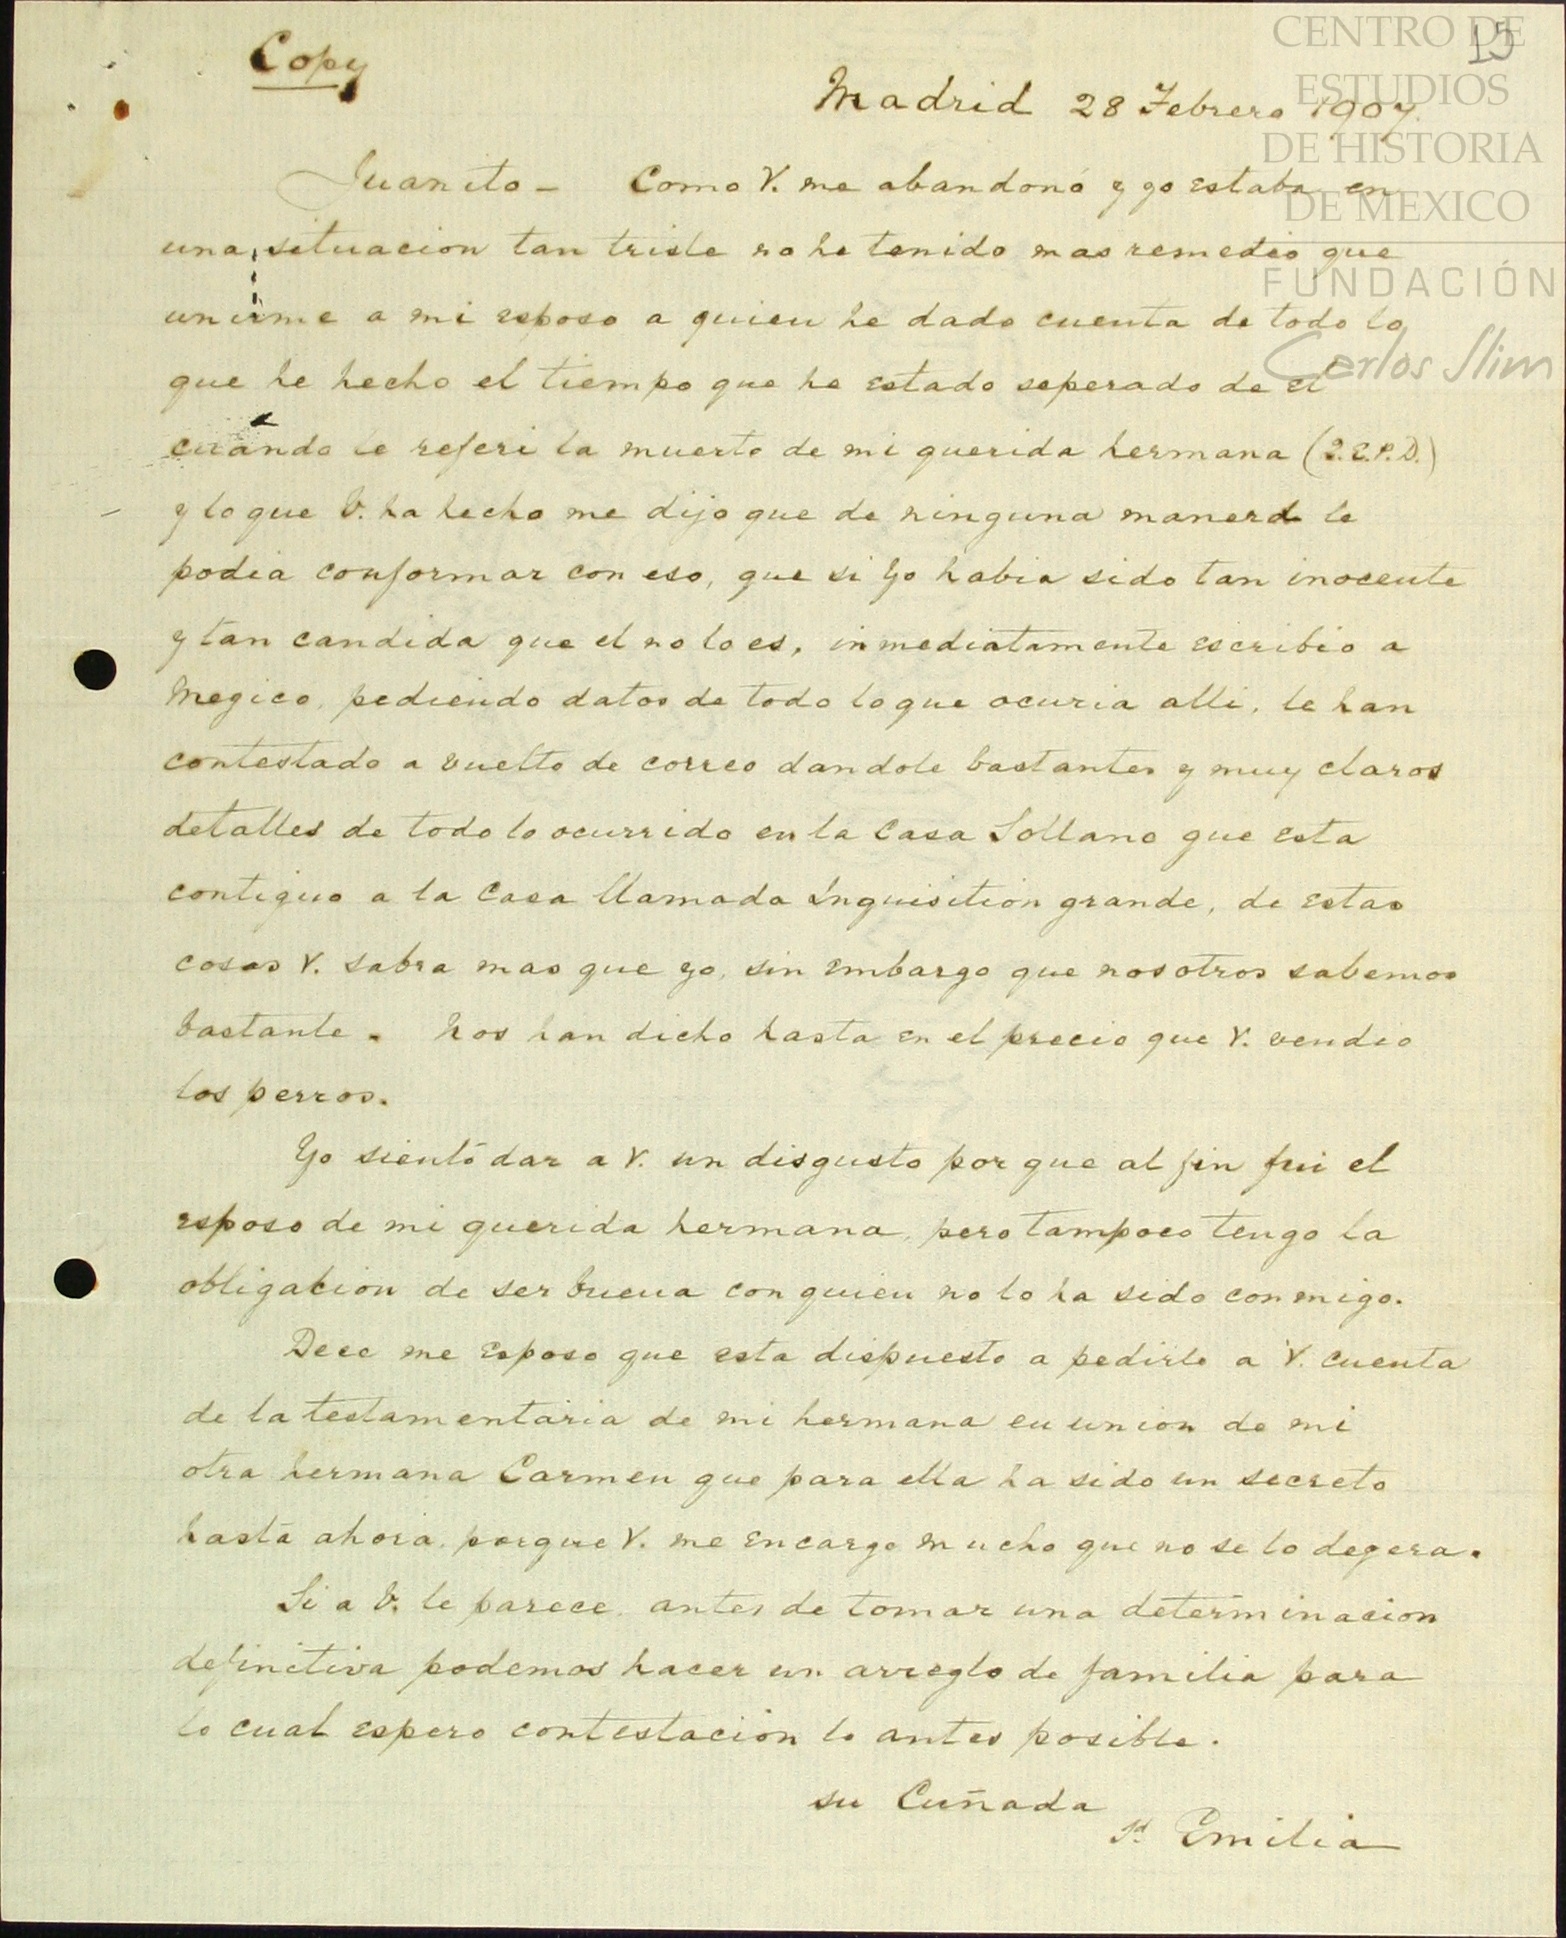 Copy
15
Madrid 28 Febrero 1907.
Juanito – Como V. me abandonó y yo estaba en
una situacion tan triste no he tenido mas remedio que
unirme a mi esposo a quien he dado cuenta de todo lo
que he hecho el tiempo que he estado seperado de el
cuándo le referi la muerte de mi querida hermana (Q.E.P.D.)
y lo que V. ha hecho me dijo que de ninguna manera le
podia conformar con eso, que si Yo habia sido tan inocente
y tan candida que el no lo es, inmediatamente escribio a
Megico, pediendo datos de todo lo que ocuria alli, le han
contestado a vuelto de correo dandole bastantes y muy claros
detalles de todo lo ocurrido en la Casa Sollano que esta
contiguo a la Casa llamada Inquisition grande, de estas
cosas V. sabra mas que yo, sin embargo que nosotros sabemos
bastante. Nos han dicho hasta en el precio que V. vendio
los perros.
Yo siento dar a V. un disgusto por que al fin fui el
esposo de mi querida hermana, pero tampoco tengo la
obligation de ser buena con quien no lo ha sido conmigo.
Dece me esposo que esta dispuesto a pedirle a V. cuenta
de la testamentaria de mi hermana en union de mi
otra hermana Carmen que para ella ha sido un secreto
hasta ahora, porque V. me encargo mucho que no se lo degera.
Si a V. le parece, antes de tomar una determinacion
definitiva podemos hacer un arreglo de familia para
lo cual espero contestación lo antes posible.
su Cuñada
Emilia
CENTRO DE
ESTUDIOS
DE HISTORIA
DE MEXICO
FUNDACIÓN
Carlos Slim